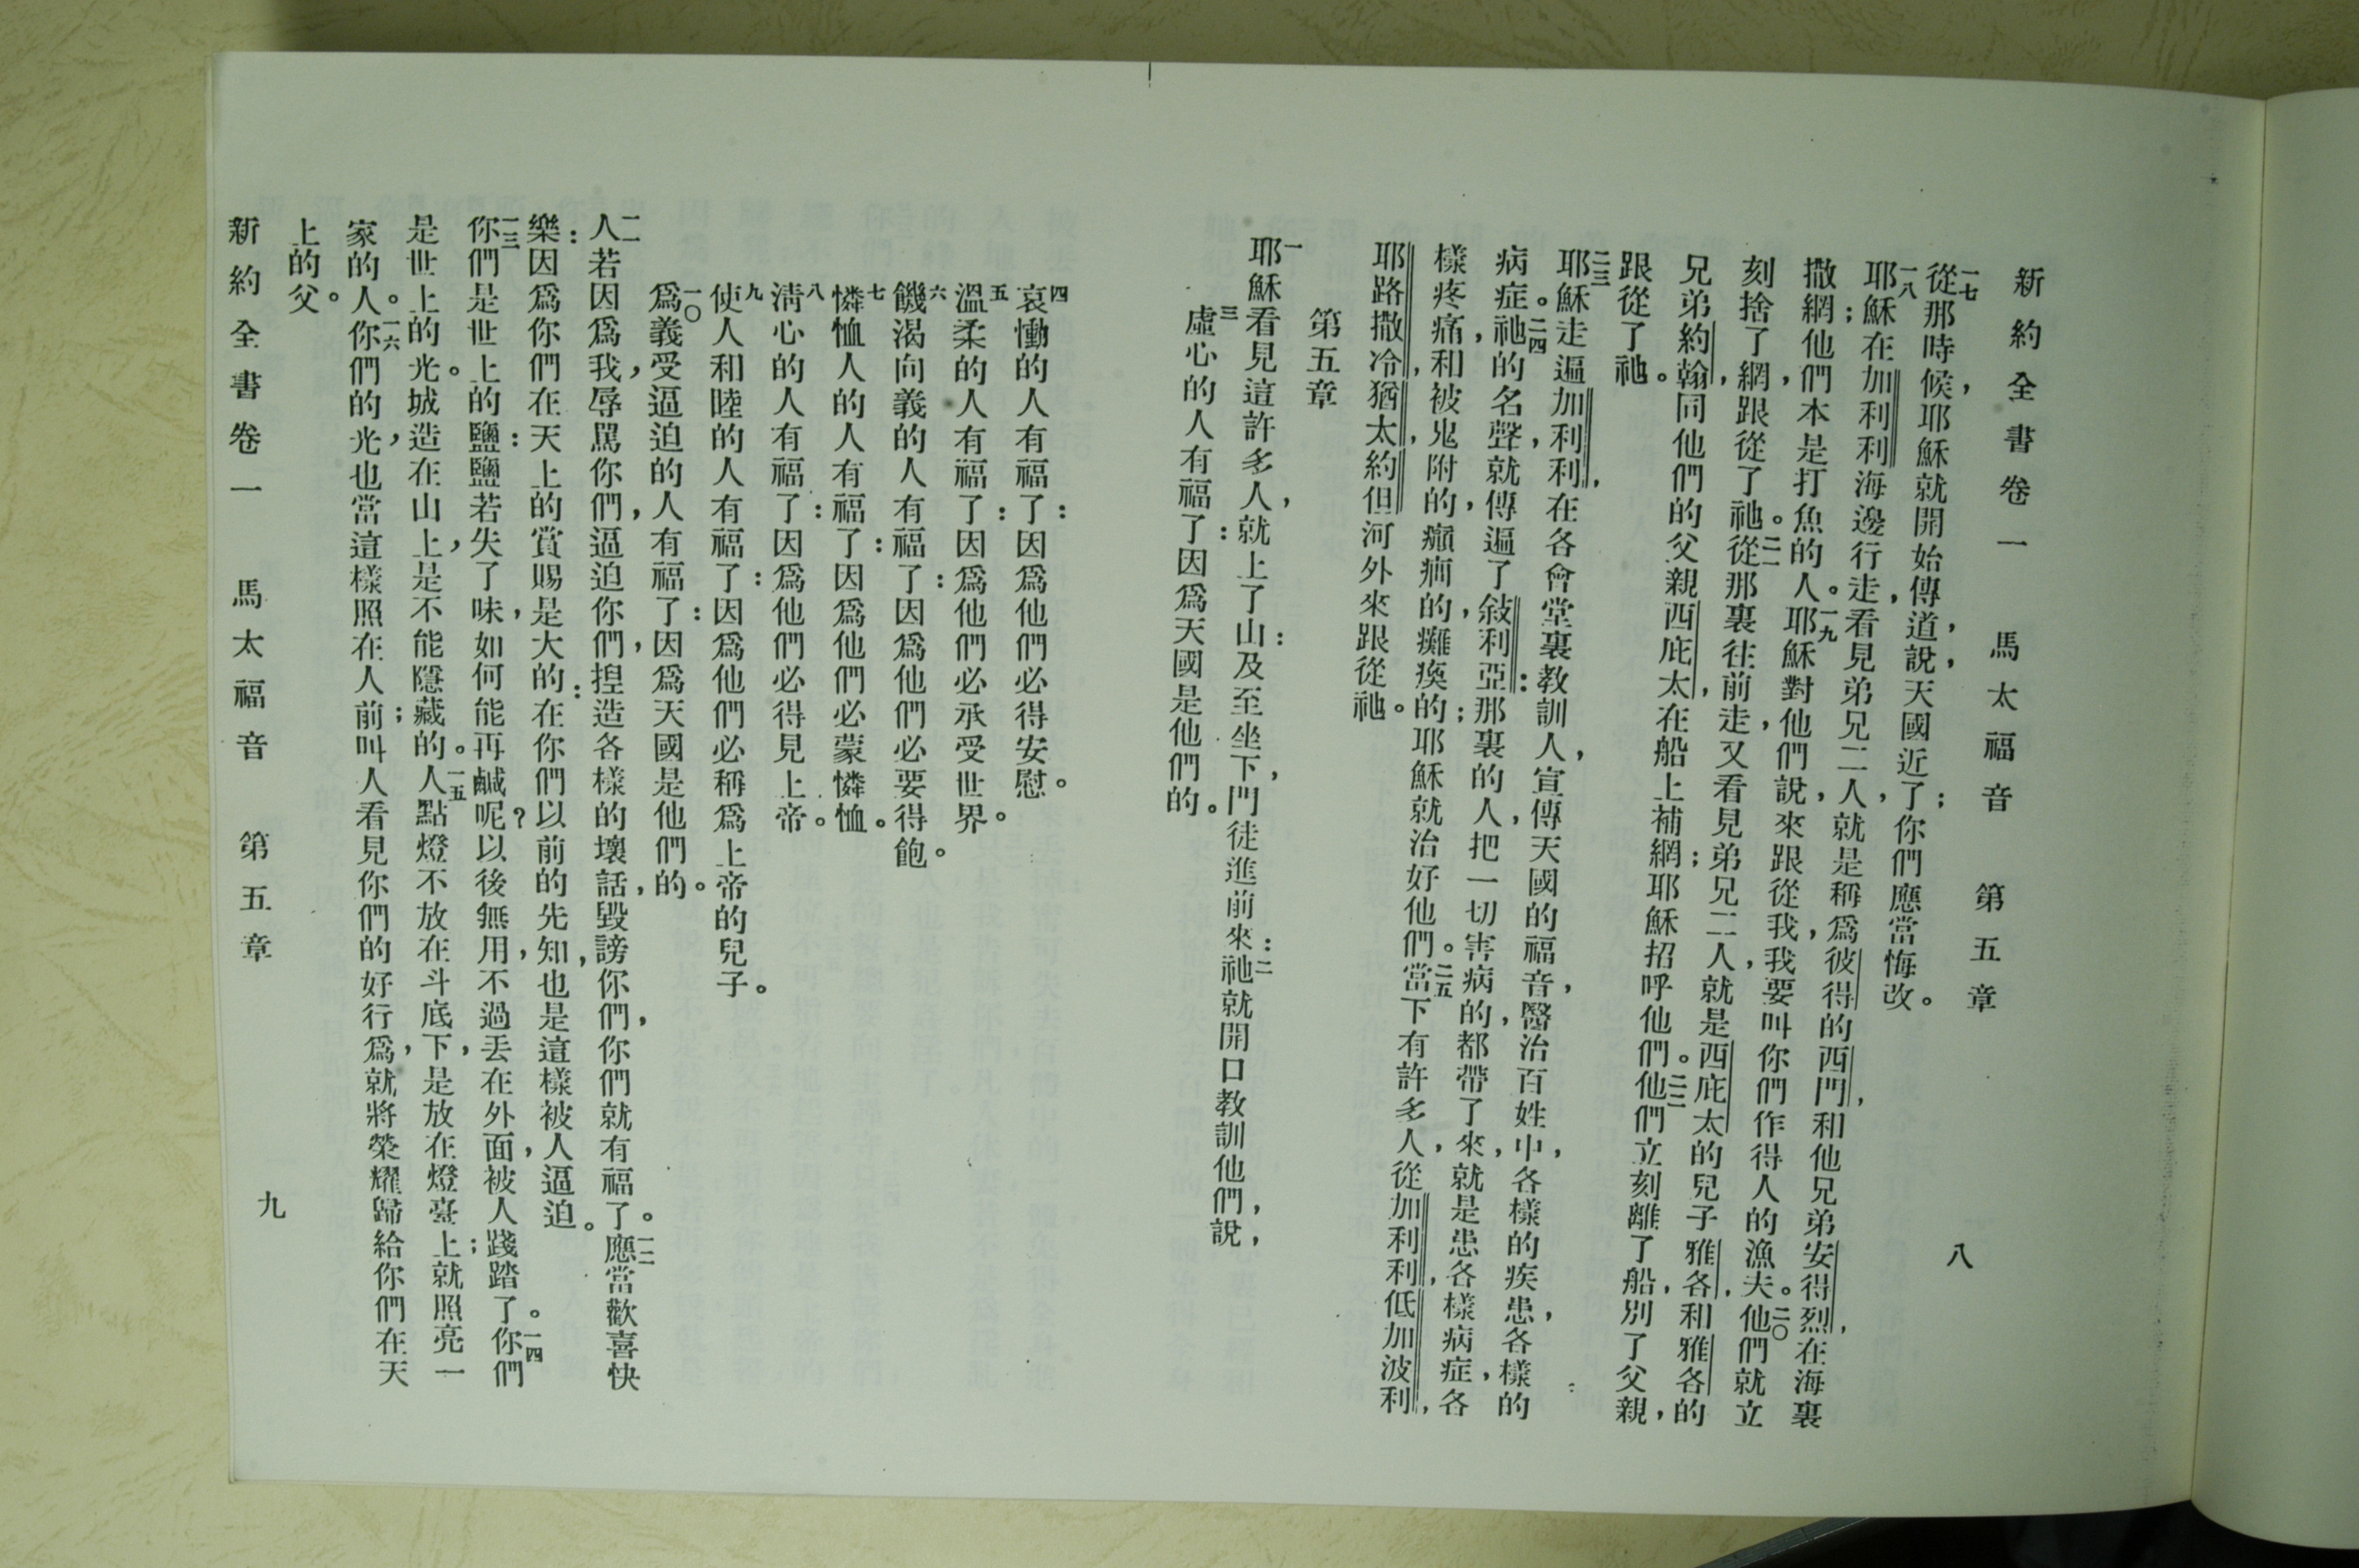 新約全書卷一　馬太福音　第五章　八
一七從那時候，耶穌就開始傳道，說，天國近了；你們應當悔改。
一八耶穌在加利利海邊行走，看見弟兄二人，就是稱爲彼得的西門，和他兄弟安得烈，在海裏
撒網；他們本是打魚的人。一九耶穌對他們說，來跟從我，我要叫你們作得人的漁夫。二〇他們就立
刻捨了網，跟從了祂。二一從那裏往前走，又看見弟兄二人，就是西庇太的兒子雅各，和雅各的
兄弟約翰，同他們的父親西庇太，在船上補網；耶穌招呼他們。二二他們立刻離了船，別了父親，
跟從了祂。
二三耶穌走遍加利利，在各會堂裏教訓人，宣傳天國的福音，醫治百姓中，各樣的疾患，各樣的
病症。二四祂的名聲，就傳遍了敍利亞：那裏的人，把一切害病的，都帶了來，就是患各樣病症，各
樣疼痛，和被鬼附的，癲癎的，癱瘓的；耶穌就治好他們。二五當下有許多人，從加利利，低加波利，
耶路撒冷，猶太，約但河外來跟從祂。
第五章
一耶穌看見這許多人，就上了山：及至坐下，門徒進前來：二祂就開口教訓他們，說，
三虛心的人有福了：因爲天國是他們的。
四哀慟的人有福了：因爲他們必得安慰。
五溫柔的人有福了：因爲他們必承受世界。
六饑渴向義的人有福了：因爲他們必要得飽。
七憐恤人的人有福了：因爲他們必蒙憐恤。
八淸心的人有福了：因爲他們必得見上帝。
九使人和睦的人有福了：因爲他們必稱爲上帝的兒子。
一〇爲義受逼迫的人有福了：因爲天國是他們的。
一一人若因爲我，辱罵你們，逼迫你們，捏造各樣的壞話，毀謗你們，你們就有福了。一二應當歡喜快
樂：因爲你們在天上的賞賜是大的：在你們以前的先知，也是這樣被人逼迫。
一三你們是世上的鹽：鹽若失了味，如何能再鹹呢？以後無用，不過丟在外面，被人踐踏了。一四你們
是世上的光。城造在山上，是不能隱藏的。一五人點燈不放在斗底下，是放在燈臺上；就照亮一
家的人。一六你們的光，也當這樣照在人前；叫人看見你們的好行爲，就將榮耀歸給你們在天
上的父。
新約全書卷一　馬太福音　第五章　九